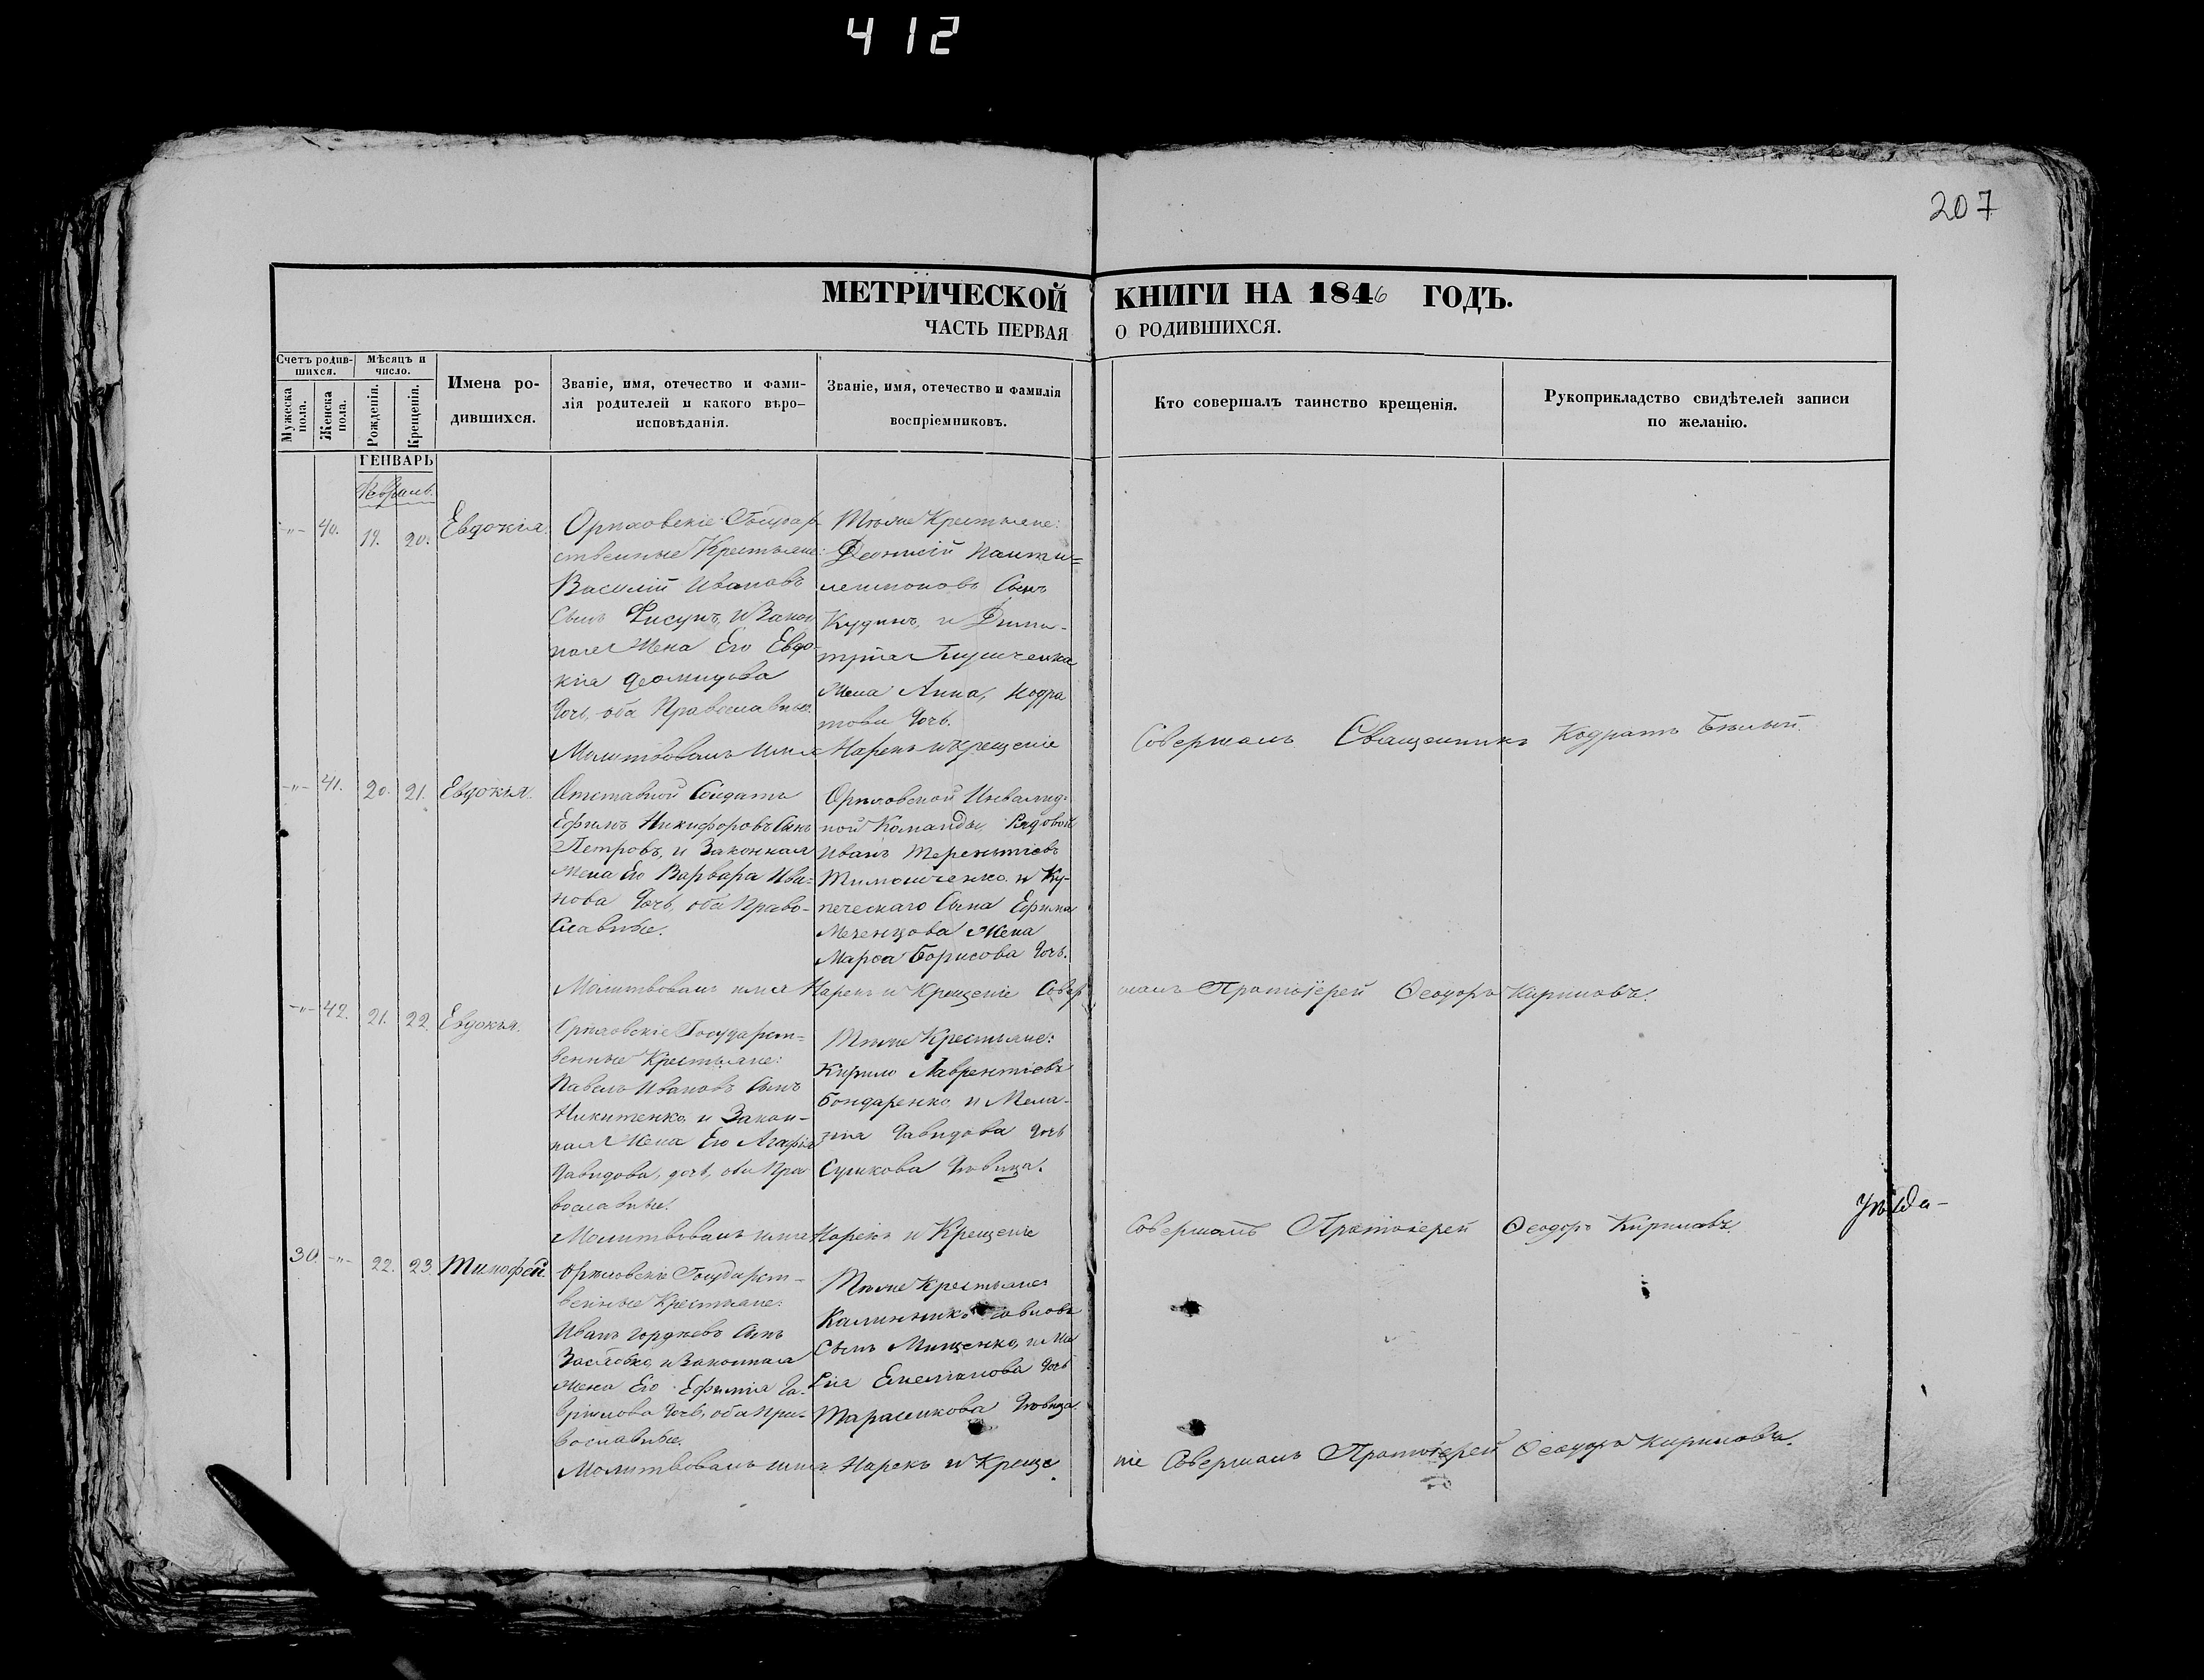 412
207
МЕТРИЧЕСКОЙ КНИГИ НА 1846 ГОДЪ.
ЧАСТЬ ПЕРВАЯ О РОДИВШИХСЯ.
Счетъ родив-
шихся.
Мужеска пола.
Женска пола.
Мѣсяцъ и
число.
Рожденія.
Крещенія.
Имена ро-
дившихся.
Званіе, имя, отечество и фами-
лія родителей и какого вѣро-
исповѣданія.
Званіе, имя, отечество и фамилія
воспріемниковъ.
Кто совершалъ таинство крещенія.
Рукоприкладство свидѣтелей записи
по желанію.
ГЕНВАРЬ
Февраль.
-"- 40. 19. 20. Евдокія.
Ориховскіе Государ
ственные Крестьяне:
Василій Ивановъ
Сынъ Фисунъ, и Закон
ная Жена Его Евдо-
кія Деомидова
Дочь, оба Православные.
Тѣже Крестьяне:
Деонисій Панти=
леимоновъ Сынъ
Кудинъ, и Дими-
трія Глушченка
Жена Анна, Кодра
това Дочь.
Молитвовалъ Имя Нарекъ и Крещеніе Совершалъ Священникъ Кодратъ Бѣлый.
-"- 41. 20. 21. Евдокія.
Отставной Солдатъ
Ефимъ Никифоровъ Сынъ
Петровъ, и Законная
Жена Его Варвара Ива=
нова Дочь, оба Право-
славные.
Ориховской Инвалид-
ной Команды, Рядовой
Иванъ Терентіевъ
Тимошченко и Ку-
печескаго Сына Ефима
Меченцова Жена
Марѳа Борисова Дочь.
Молитвовалъ имя Нарекъ и Крещеніе Совер шалъ Протоіерей Ѳеодоръ Кириловъ.
-"- 42. 21. 22. Евдокія.
Ориховскіе Государст=
венные Крестьяне:
Павелъ Ивановъ Сынъ
Никитенко, и Закон-
ная Жена Его Агафія
Давидова, дочь, оба Пра
вославные.
Тѣже Крестьяне:
Кирило Лаврентіевъ
Бондаренко, и Мела-
нія Давидова Дочь
Сулікова Дѣвица.
Молитвовалъ имя Нарекъ и Крещеніе Совершалъ Протоіерей Ѳеодоръ Кириловъ.
30. -"- 22. 23. Тимофей.
Ориховскіе Государст-
венные Крестьяне:
Иванъ Гордѣевъ Сынъ
и Законная
Жена Его Ефимія Га-
врилова Дочь, оба Пра-
вославные.
Тѣже Крестьяне:
Калинникъ Павловъ
Сынъ Мищенко, и
Емельянова Дочь
Тарасенкова Дѣвица.
Молитвовалъ имя Нарекъ и Креще ніе Совершалъ Протоіерей Ѳеодоръ Кириловъ.